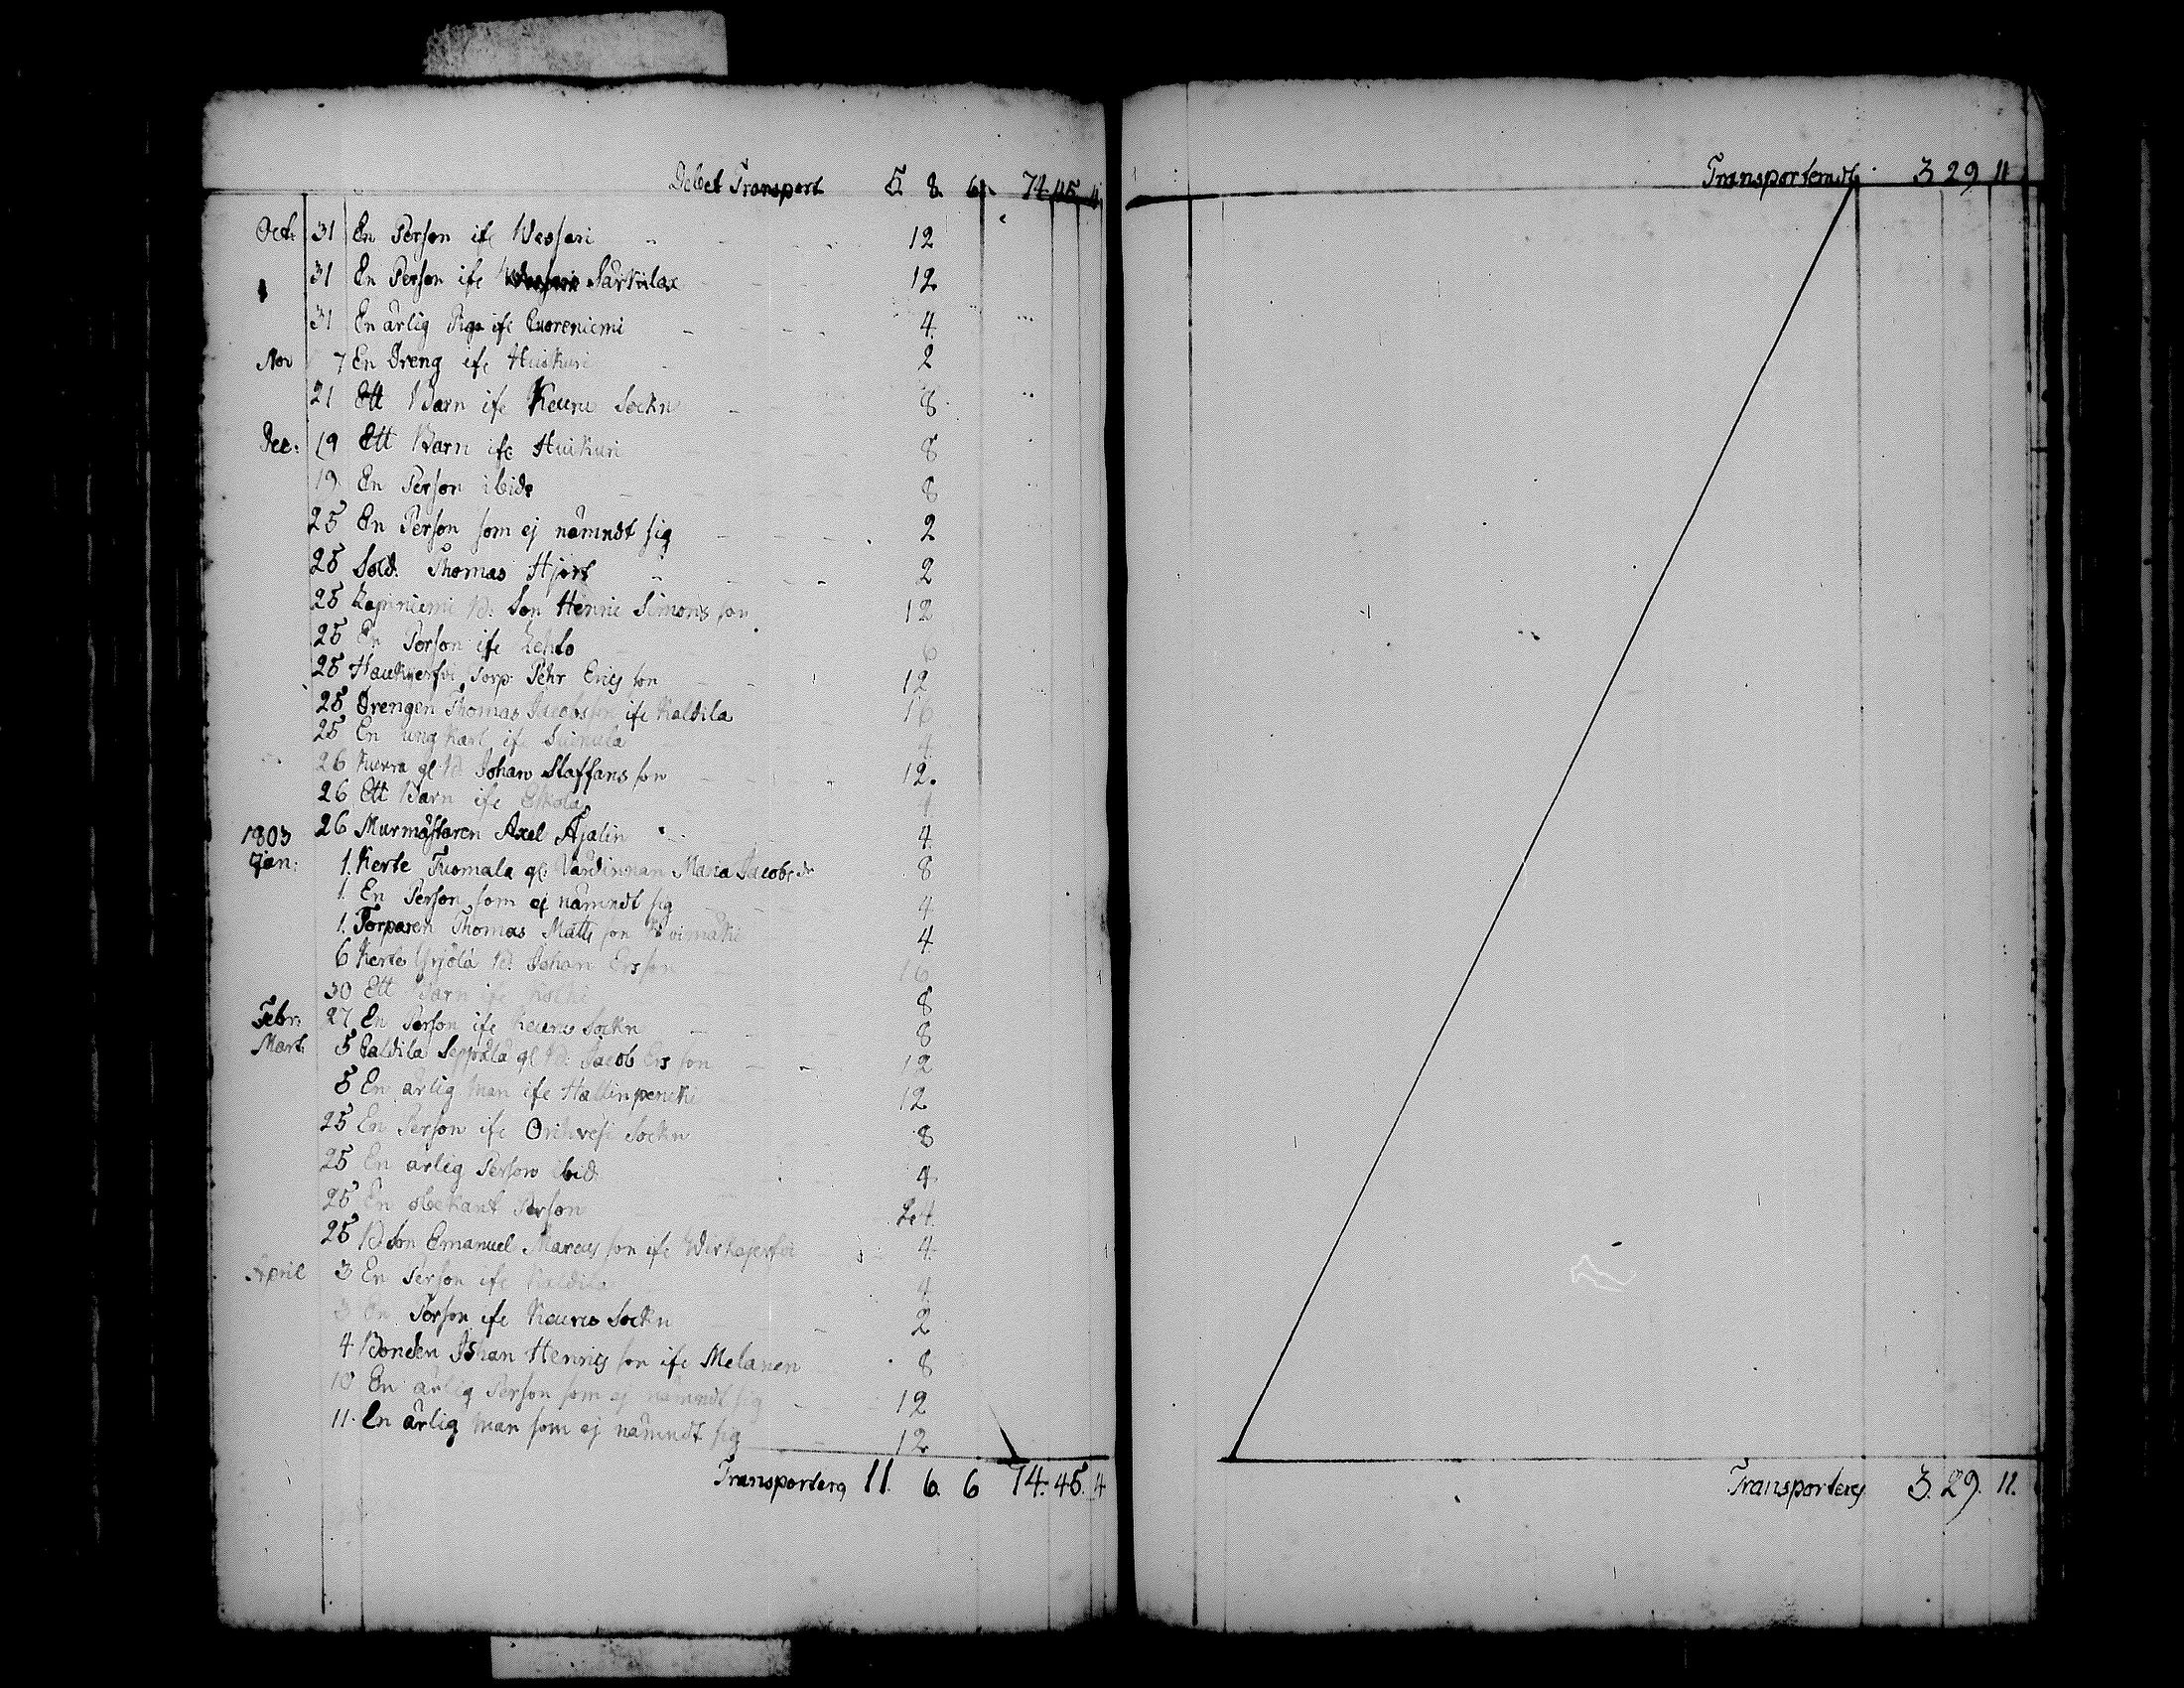 Debet Transport 5. 8. 6. 74. 45. 4
Oct: 31 En Person ifr Wessari 12
31 En Person ifr Särkilax 12.
31 En ärlig Piga ifr Quoreniemi 4.
Nov 7 En Dreng ifr Huikuri 2
21 Ett Barn ifr Keuru Sockn 8
Dec: 19 Ett Barn ifr Huikuri 8
19. En Person ibid: 8
25 En Person som ej nämndt sig 2
25 Sold. Thomas Hjort 2
25 Lepiniemi B: Son Henric Simonsson 12
25 En Person ifr Lehto 6
25 Haukijerfvi Torp. Pehr Ericsson 12
25 Drengen Thomas Jacobsson ifr Kaldila 16
25 En ung Karl ifr Suinula 4
26 Kuerra gl. B. Johan Staffansson 12.
26 Ett Barn ifr Eskola
1803 26 Murmästaren Axel Ajalin 4.
Jan: 1. Kerte Tuomala gl. Värdinnan Maria Jacobsdr 8
1. En Person som ej nämndt sig 4
1. Torparen Thomas Mattsson 4
6 Kerte Yrjölä B. Johan Ersson 16
30 Ett Barn ifr 8
Febr: 27 En Person ifr Keuru Sockn 8
Mart: 5 Kaldila Seppälä gl B: Jacob Ersson 12
5 En ärlig Man ifr Hallinpenki 12
25 En Person ifr Orihvesi Sockn 8
25 En ärlig Person ibid. 4
25 En obekant Person 24.
25 B. Son Emanuel Marcusson ifr Werkajerfvi 4.
April 3 En Person ifr Kaldila 4.
3 En Person ifr Keuru Sockn 2
4 Bonden Johan Henricsson ifr Melanen 8
10 En ärlig Person som ej nämndt sig 12
11. En ärlig Man som ej nämndt sig 12
Transporteras 11. 6. 6 74. 45. 4
Transporteradt 3 29 11
Transporteras 3. 29. 11.